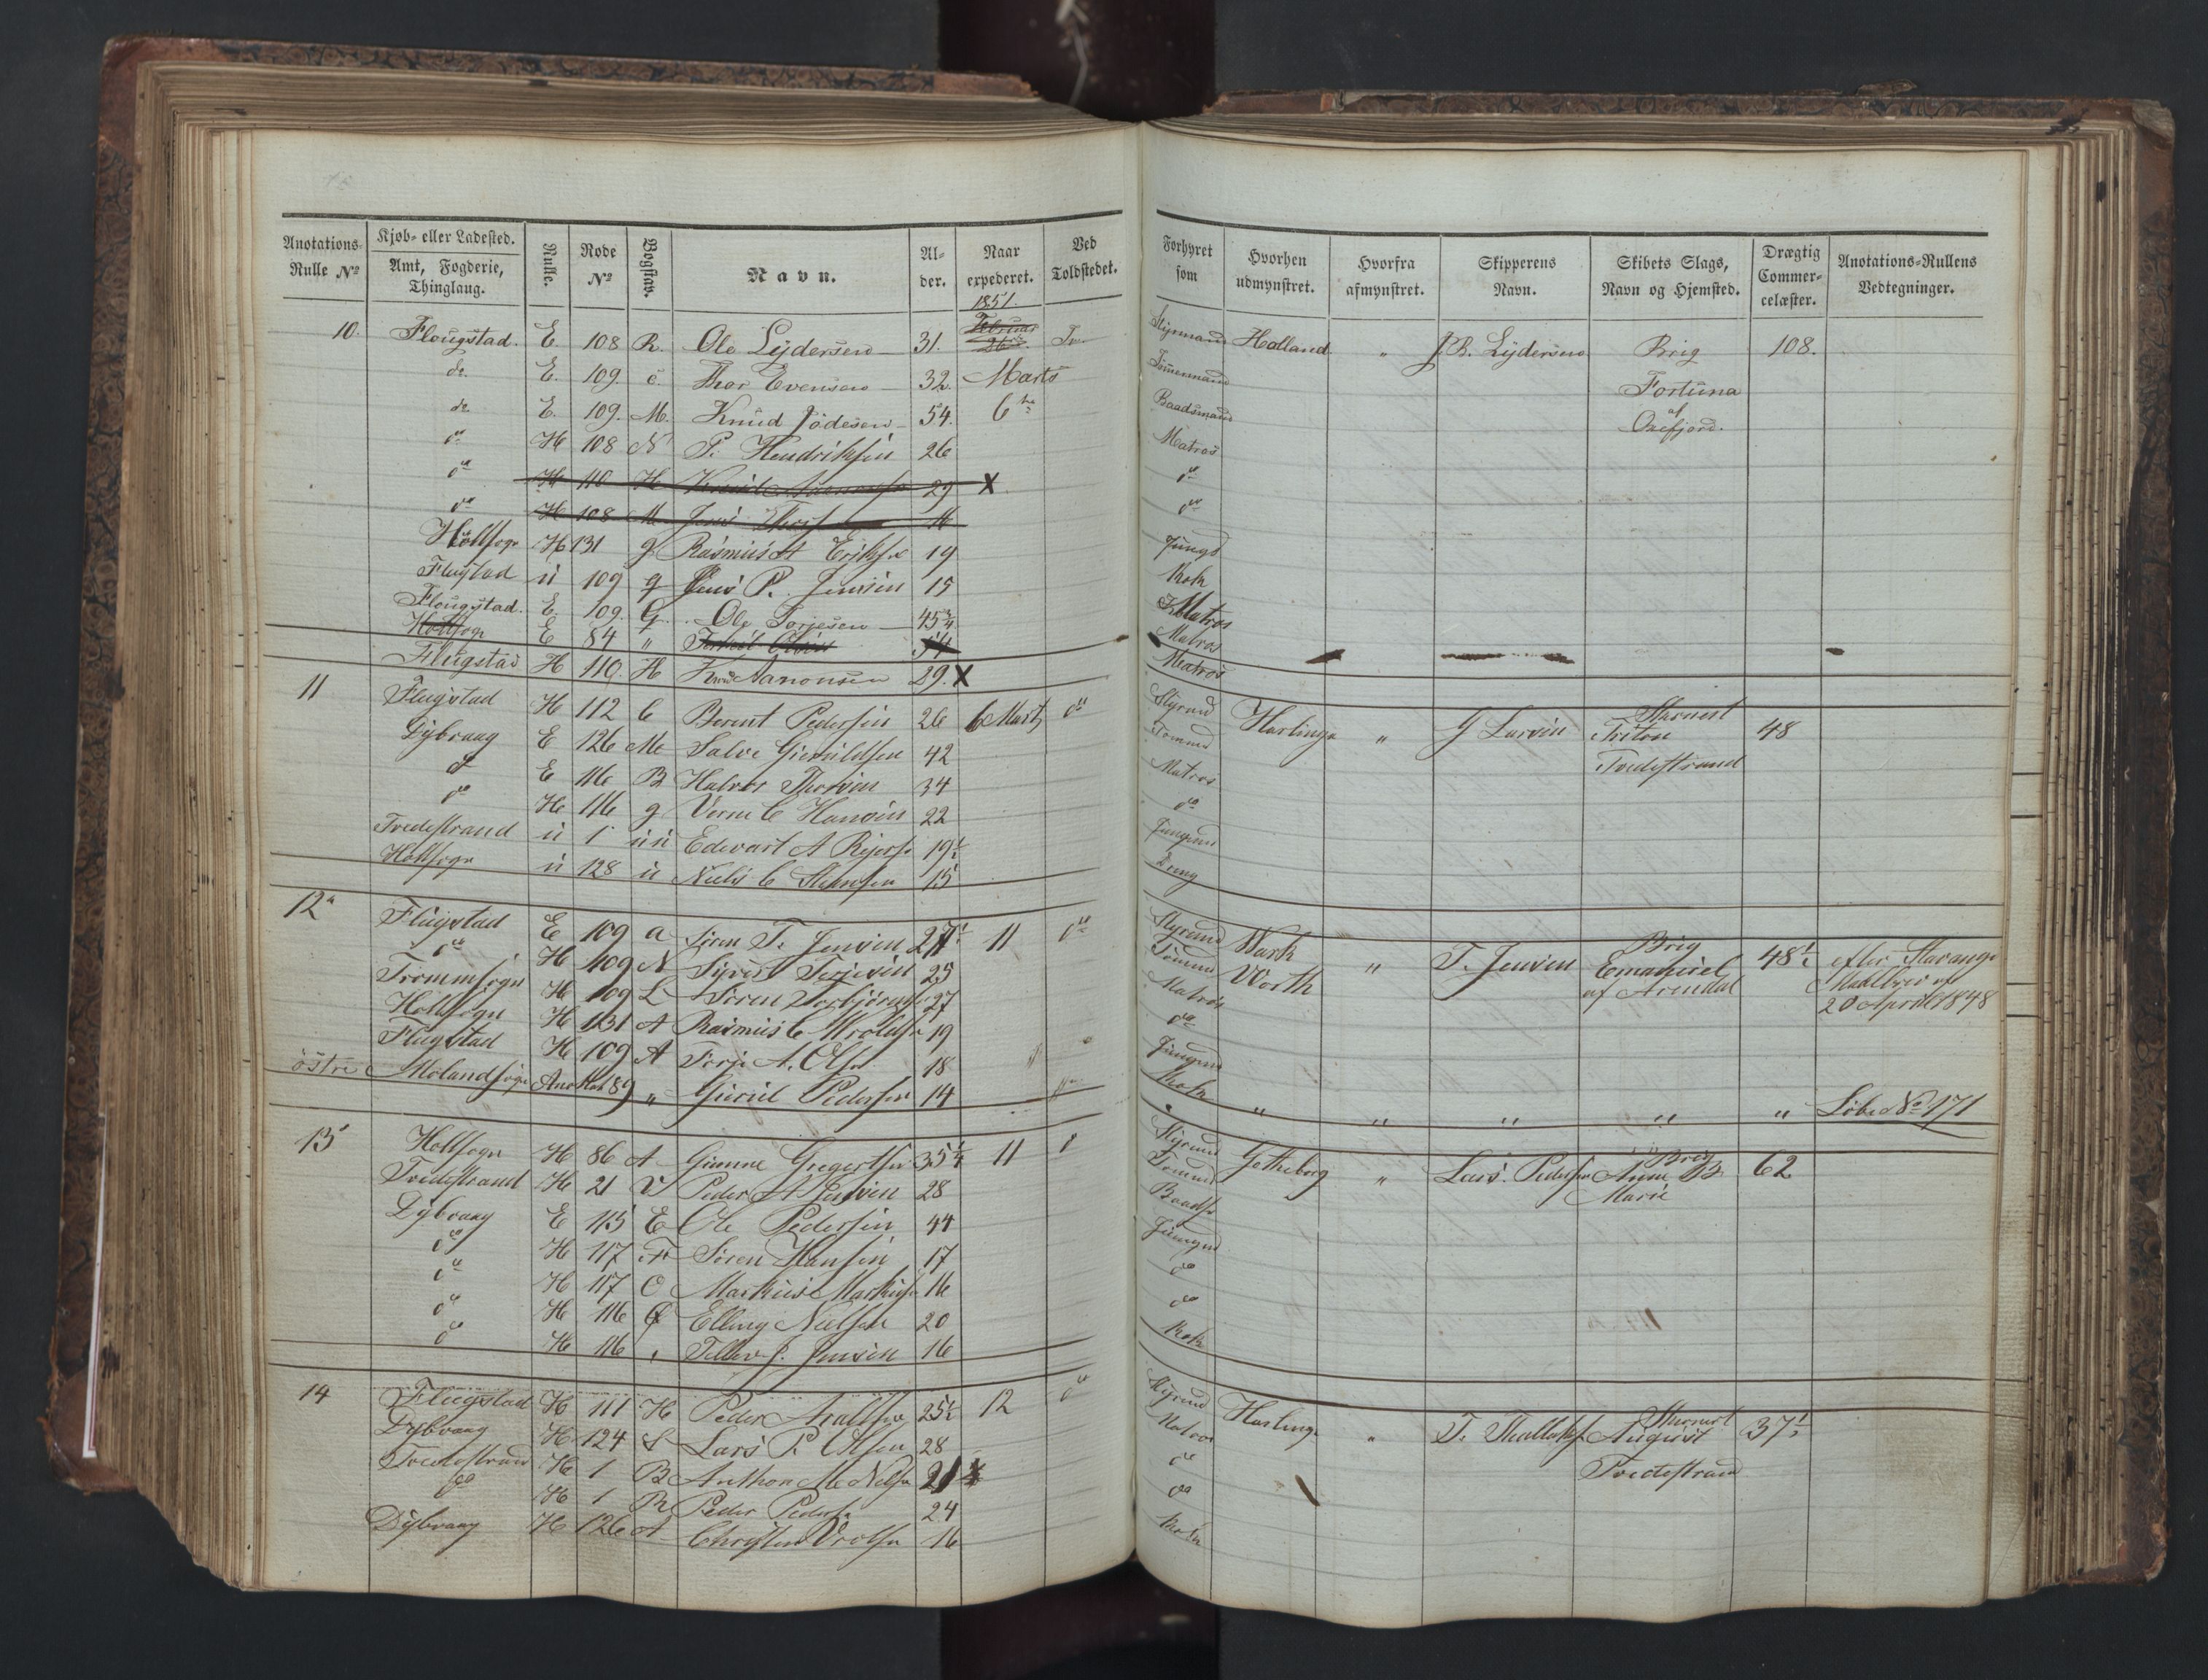 Anotations-Rulle No | Kjøb- eller Ladested. Amt, Fogderie, Thinglaug. | Rulle. | Rode No | Bogstav. | Navn. | Al-der. | Naar expederet. | Ved Toldstedet. | Forhyret som | Hvorhen udmynstret. | Hvorfra afmynstret. | Skipperens Navn. | Skibets Slags, Navn og Hjemsted. | Drægtig Commer-celæster. | Anotations-Rullens Vedtegninger.
1851.
10. | Flougstad. | E. | 108 | R. | Ole Lydersen | 31. | Februar 26 | Tv. | Styrmand | Holland | " | J. B. Lydersen | Brig | 108.
do | E. | 109. | c. | Thor Evensen | 32. | Marts | Tömermand | Fortuna
do | E. | 109. | M. | Knud Jödesen | 54. | 6te | Baadsmand | af Oxefjord.
do | H | 108 | N | P. Hendriksen | 26 | Matros
do | H | 110 | H | Knud | 29 | X | do
do | H | 108 | M | Jens | do
Holtsogn | H | 131 | g | Rasmus A Eriksen | 19 | Jungs
Flugstad | ü | 109 | g | Jens P. Jensen | 15 | Kok
Flougstad. | E. | 109. | G. | Ole Torjesen | 45 3/4 | Matros
Holtsogn | E | 84 | " | Matros
Flugstad | H | 110. | H | Knud Aanonsen | 29. | X | Matros
11 | Flugstad | H | 112 | C | Berent Pedersen | 26 | 6 Marts | do | Styrmd | Harlingen | " | G Larsen | Skonnert Triton | 48
Dybvaag | E | 126 | M | Salve Gieruldsen | 42 | Tömmd | Tvedestrand
do | E | 116 | B | Halvor Thorsen | 34 | Matros
do | H | 116 | g | C Hansen | 22 | do
Tvedestrand | ü | 1 | ü ü | Edevart A | 19 1/2 | Jungmd
Holtsogn | ü | 128 | ü | Niels C | 15 | Dreng
12a | Flugstad | E | 109 | a | Sören T. Jensen | 11 | do | Styrmd | Wark Worth | " | T. Jensen | Brig Emanuel af Arendal | 48 1/2 | efter Stavanger Maalbrev af 20 April 1848
do | H | 109 | N | Terjesen | 25 | Tömmd
Trommsogn | H | 109 | L | Sören Torbjörnsen | 27 | Matros
Holtsogn | H | 131 | A | Rasmus C | 19 | do
Flugstad | H | 109 | A | Terje A. Olsen | 18 | Jungmd
östre Molandsogn | 89 | " | Gierul Pedersen | 14 | Kok | " | " | " | " | " | Löbe No 171
13 | Holtsogn | H | 86 | A | Gunne Gregersen | 35 1/4 | 11 | Styrmd | Gotheborg | " | Lars Pedersen | Brig Anne Marie | 62
Tvedestrand | H | 21 | V | Peder A Jensen | 28 | Tömmd
Dybvaag | E | 115 | E | Ole Pedersen | 44 | Baadsm
do | H | 117 | F | Sören Hansen | 17 | Jungmd
do | H | 117 | O | Markus Markusen | 16 | do
do | H | 116 | Elling Nielsen | 20 | do
do | H | 116 | Tellev J. Jensen | 16 | Kok
14 | Flugstad | H | 111 | H | Peder | 25 1/2 | 12 | do | Styrmd | Harlingen | " | T. | Skonnert August | 37 1/2
Dybvaag | H | 124 | S | Lars P. Olsen | 28 | Matros | Tvedestrand
Tvedestrand | H | 1 | B | Anthon M Nielsen | 21 | do
do | H | 1 | B | Peder Pedersen | 24 | do
Dybvaag | H | 126 | A | Christen | 16 | Kok